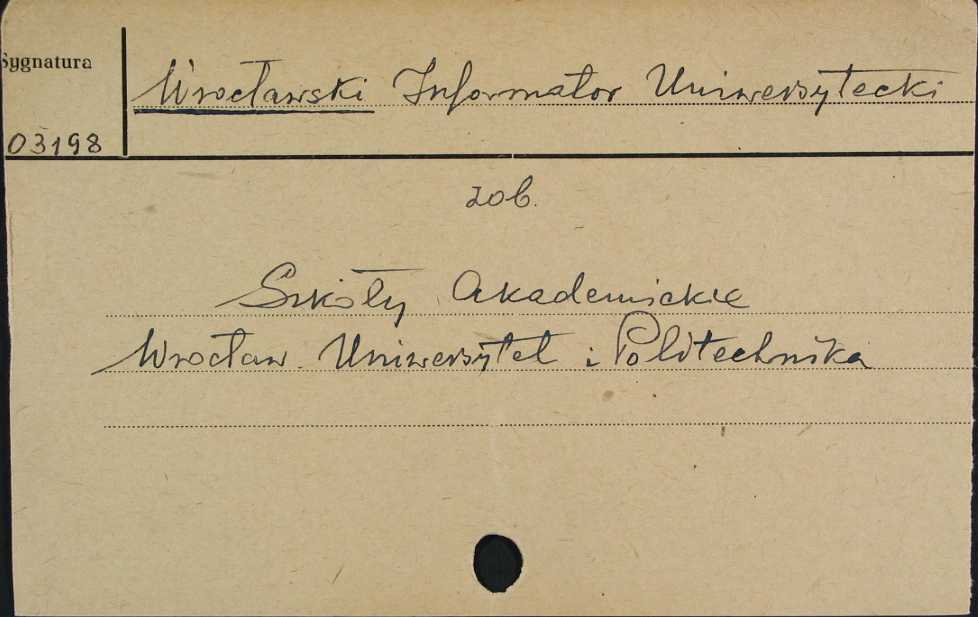 Sygnatura
Wrocławski Informator Uniwersytecki
03198
zob.
Szkoły Akademickie
Wrocław. Uniwersytet i Politechnika